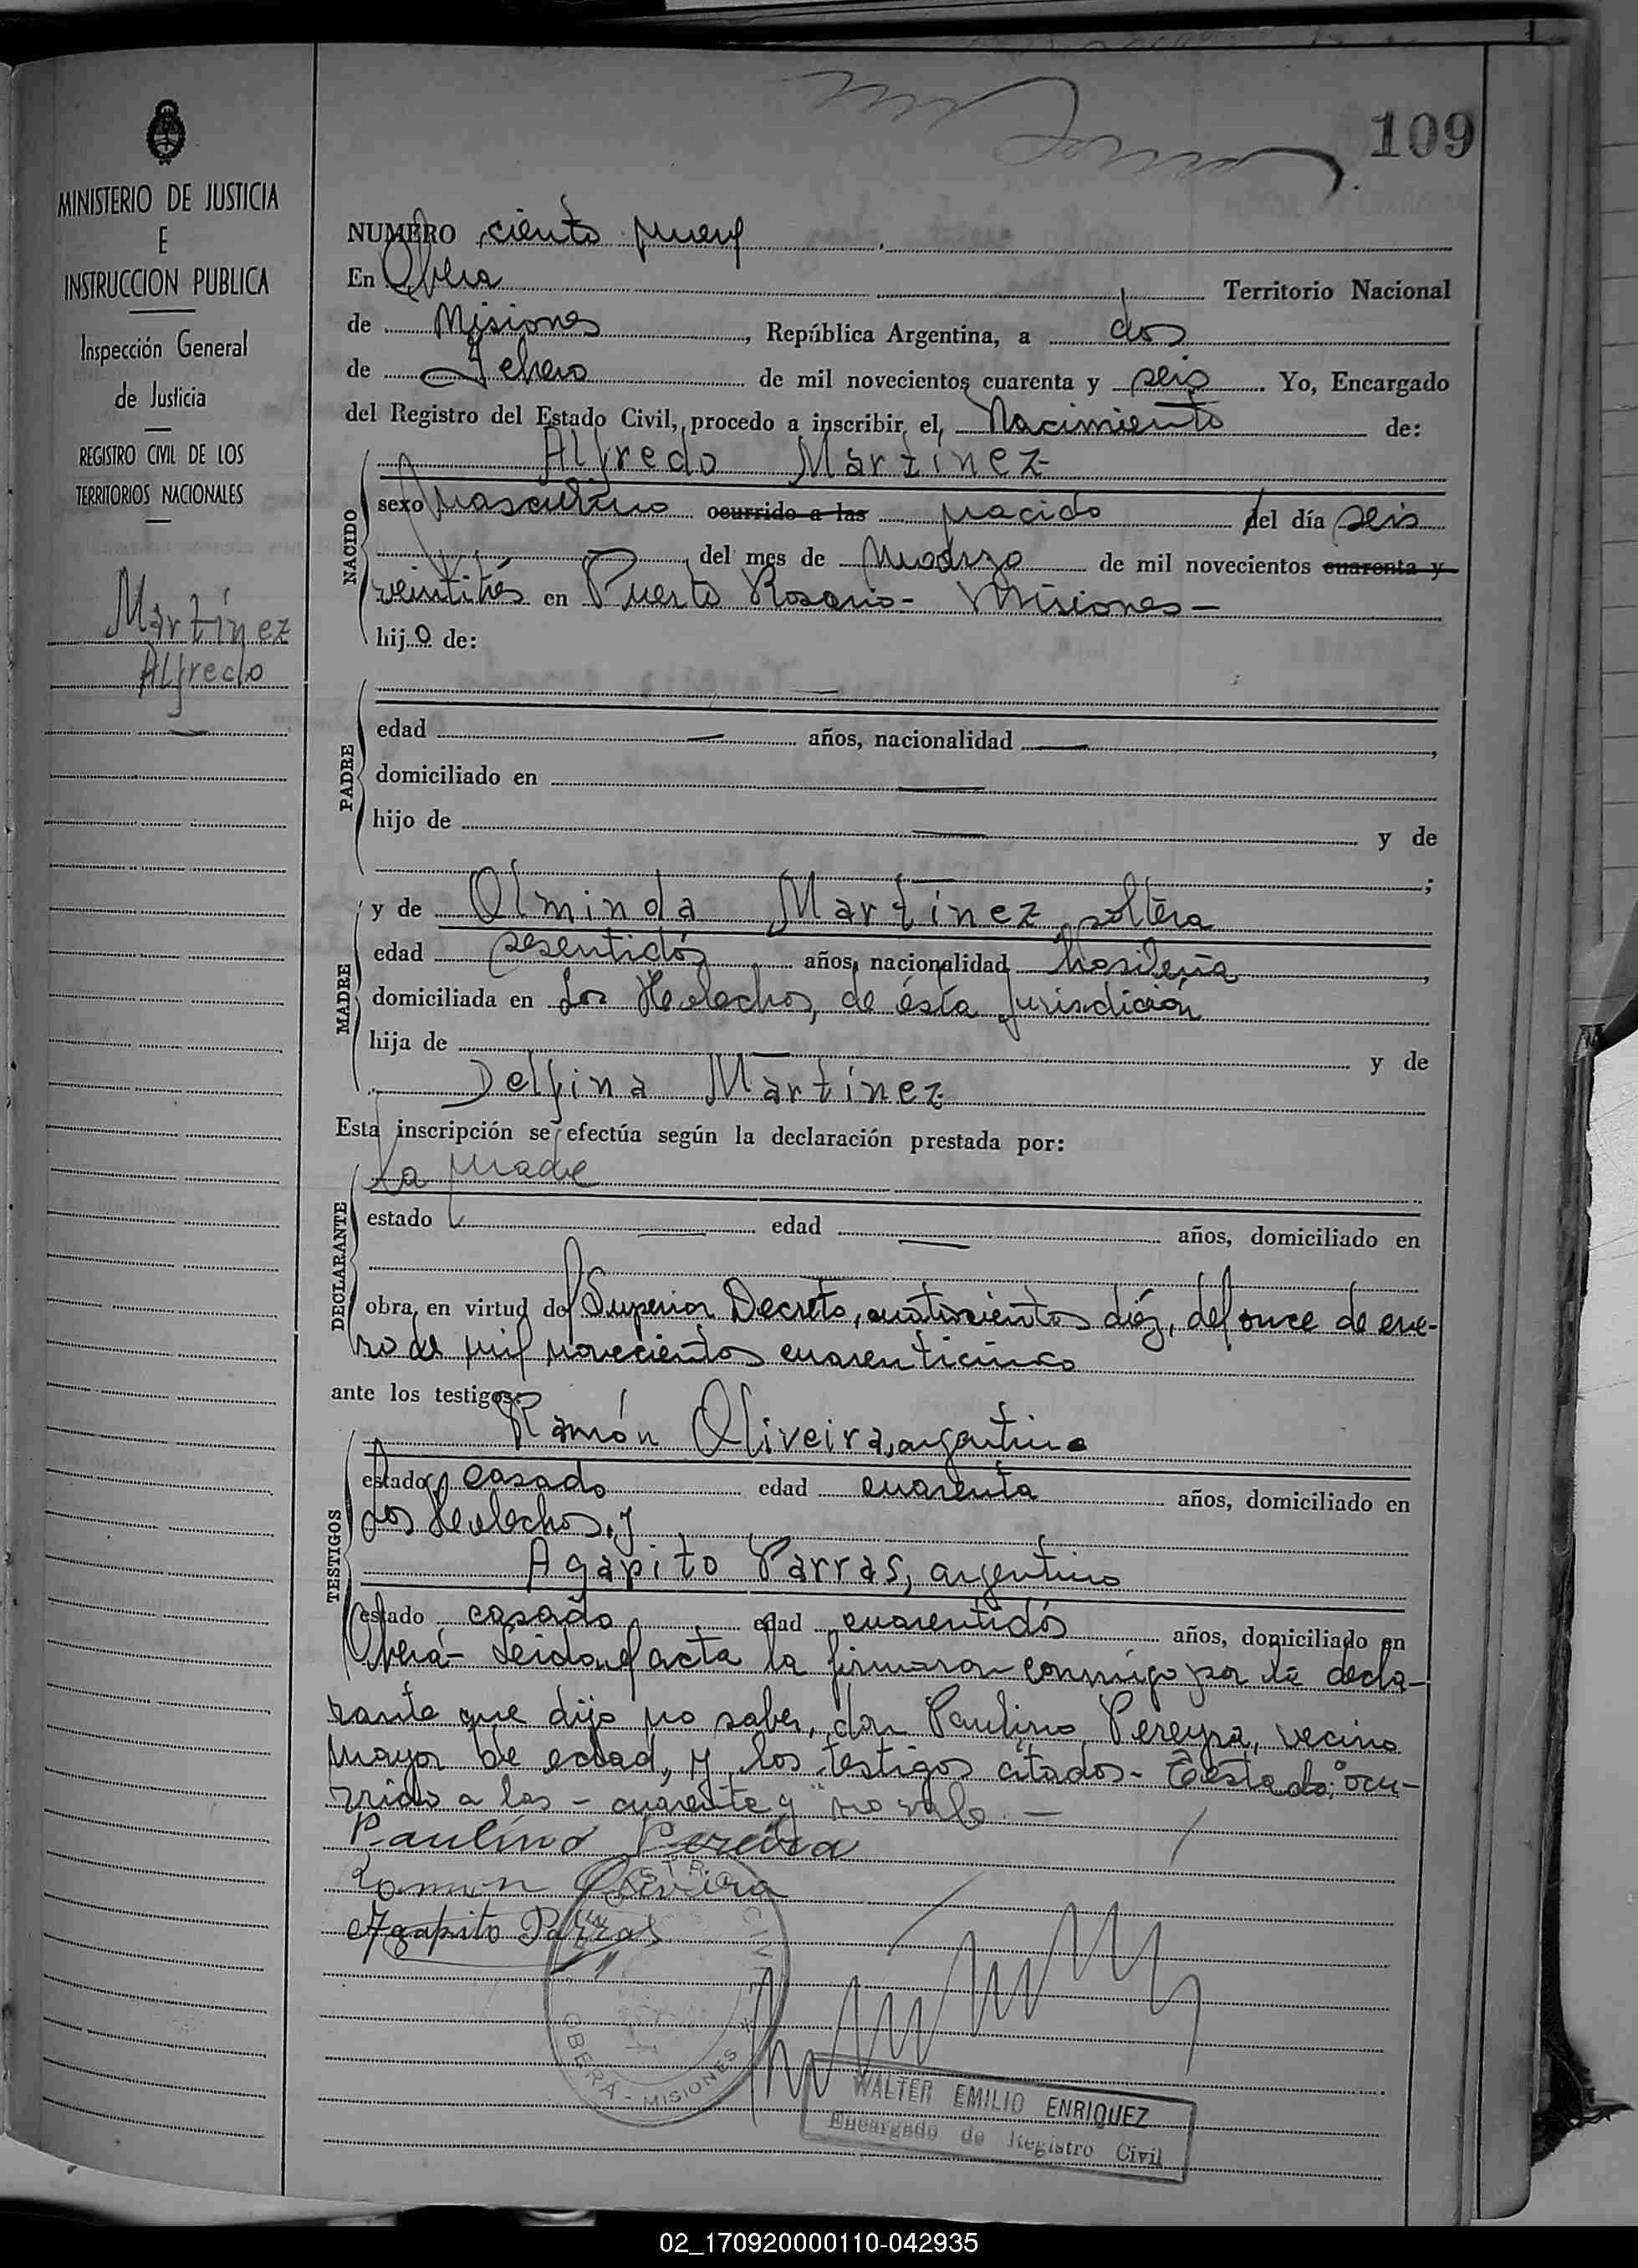 109
MINISTERIO DE JUSTICIA
E
INSTRUCCION PUBLICA
Inspección General
de Justicia
REGISTRO CIVIL DE LOS
TERRITORIOS NACIONALES
Martínez
Alfredo
NUMERO ciento nueve
En Oberá Territorio Nacional
de Misiones, República Argentina, a dos
de Febrero de mil novecientos cuarenta y seis. Yo, Encargado
del Registro del Estado Civil, procedo a inscribir el Nacimiento de:
Alfredo Martínez
NACIDO
sexo masculino ocurrido a las nacido del día seis
del mes de Marzo de mil novecientos cuarenta y
veintitrés en Puerto Rosario - Misiones -
hijo de:
PADRE
edad — años, nacionalidad —,
domiciliado en —
hijo de — y de
— ;
MADRE
y de Olminda Martínez, soltera
edad sesentidós años, nacionalidad brasileña,
domiciliada en Los Helechos, de ésta jurisdición
hija de — y de
Delfina Martínez
Esta inscripción se efectúa según la declaración prestada por:
DECLARANTE
La madre
estado — edad — años, domiciliado en
obra en virtud del Superior Decreto, cuatrocientos diéz, del once de ene-
ro de mil novecientos cuarenticinco
ante los testigos:
TESTIGOS
Ramón Oliveira, argentino
estado casado edad cuarenta años, domiciliado en
Los Helechos, y
Agapito Parras, argentino
estado casado edad cuarentidós años, domiciliado en
Oberá - Leida el acta la firmaron conmigo por la decla-
rante que dijo no saber, don Paulino Pereyra, vecino
mayor de edad, y los testigos citados - Testado: "ocu-
rrido a las - cuarenta y" no vale. —
Paulino Pereira
Ramon Oliveira
Agapito Parras
OBERÁ - MISIONES
WALTER EMILIO ENRIQUEZ
Encargado de Registro Civil
02_170920000110-042935